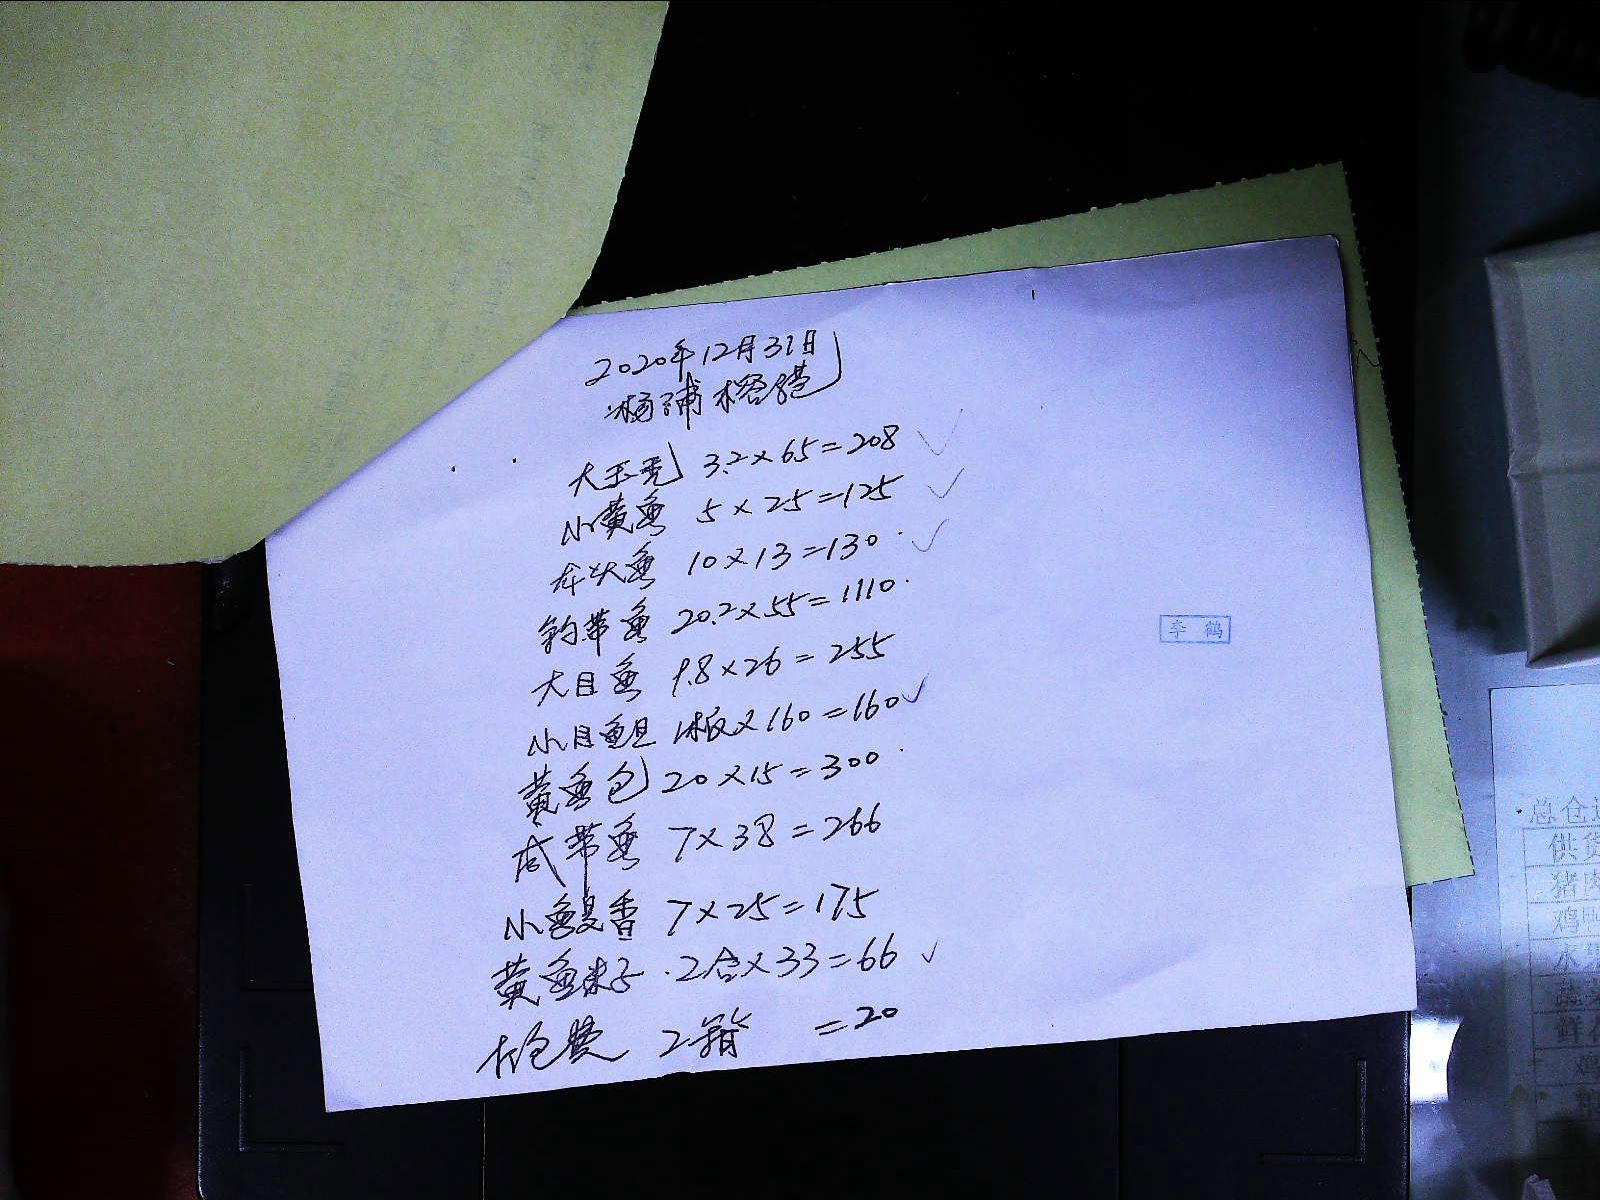 2020年12月31日
杨浦榕港
大玉秃 3.2×65=208
小黄鱼 5×25=125
车头鱼 10×13=130
钓带鱼 20.2×55=1110
大目鱼 9.8×26=255
小目鱼 1板×160=160
黄鱼包 20×15=300
咸带鱼 7×38=266
小鱼 7×25=175
黄鱼米子 2合×33=66
打包费 2箱 =20
李鹤
总仓
供货
猪肉
鸡鸭